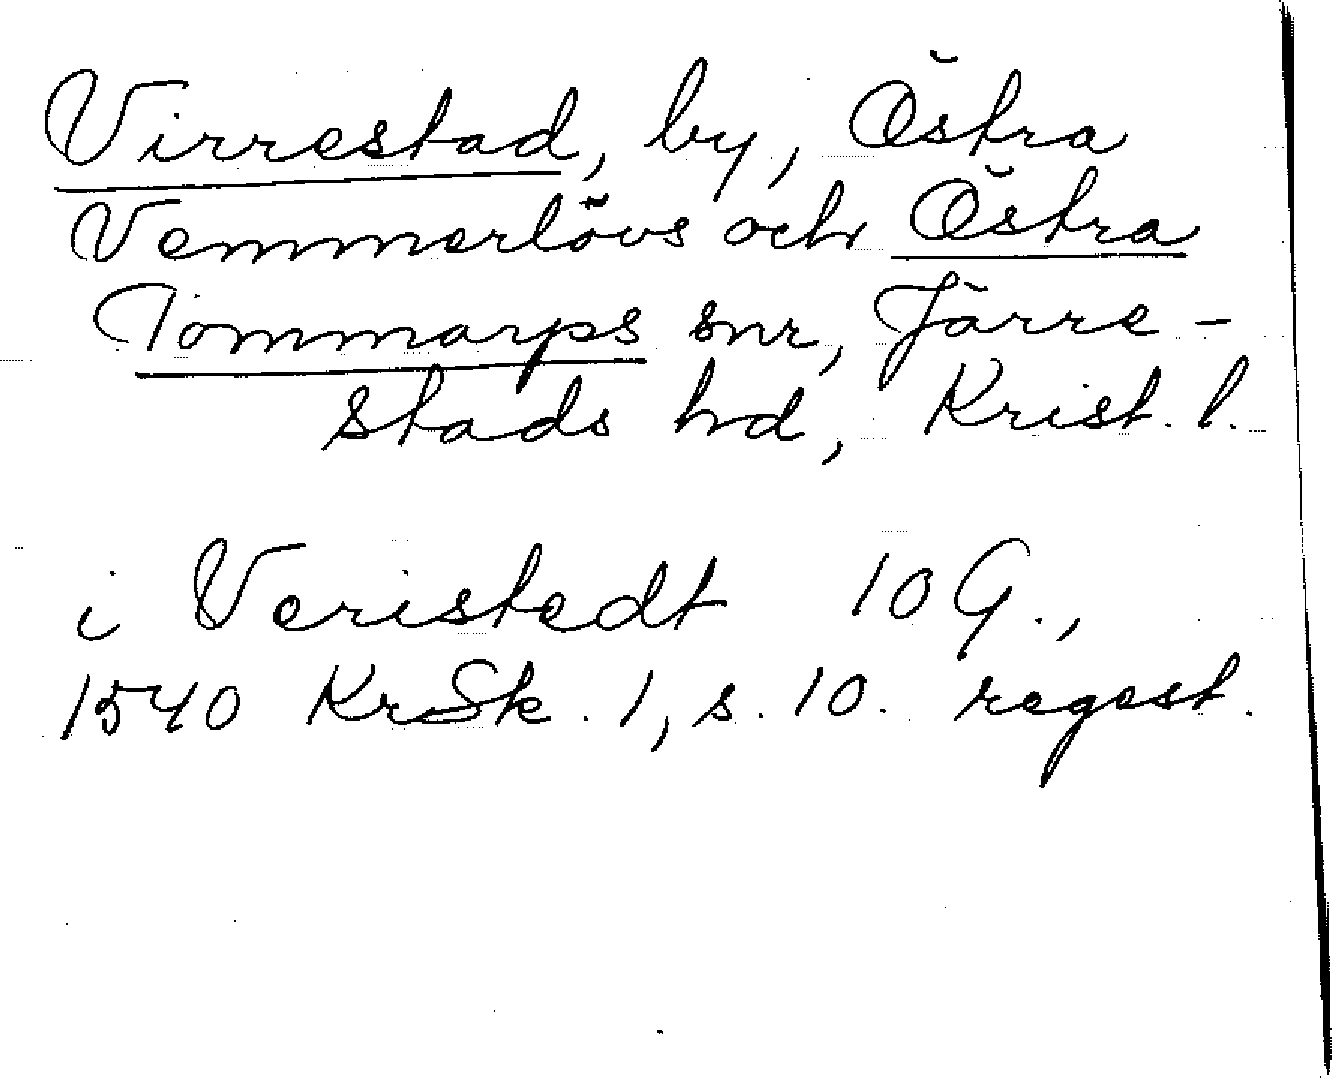 Virrestad, by, Östra
Vemmerlövs och Östra
Tommarps snr, Järre-
stads hd, Krist. l.
i Veristedt 10 G.,
1540 KrSk. 1, s. 10. regest.